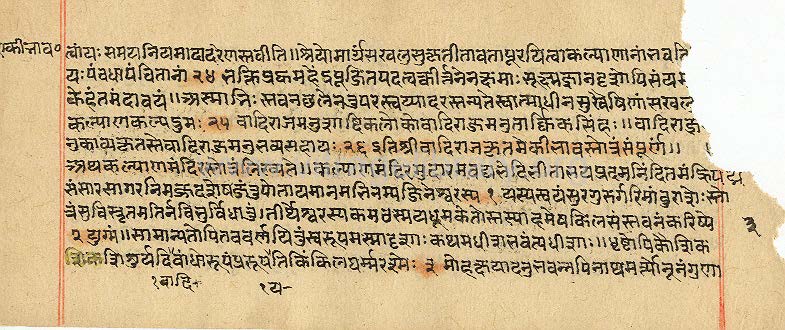 एकीभाव० त्वांयः समयनियमादादरेणस्तवीति॥श्रियोमार्गंसखलुसुकृतीतावतापूरयित्वाकल्याणानांभवति
यःपंचधापंचितानां २४ भक्तिप्रह्वमहेंद्रपूजितपदत्वत्कीर्तनेनक्षमाः सूक्ष्मज्ञानदृशोपिसंयम
केहंतमंदावयं॥अस्माभिः स्तवनछलेनतुपरस्त्वय्यादरस्तन्यतेस्वात्माधीनसुखैषिणांसखलु
कल्याणकल्पद्रुमः २५ वादिराजमनुशाब्दिकलोकोवादिराजमनुतार्किकसिंहः॥वादिराज
नुकाव्यकृतस्तेवादिराजमनुभव्यसहायः २६ इतिश्रीवादिराजकृतमेकीभावस्तोत्रंसंपूर्णं॥
अथकल्याणमंदिरस्तोत्रंलिख्यते॥कल्याणमंदिरमुदारमवद्यभेदिभीताभयप्रदमनिंदितमंघ्रिपद्म
संसारसागरनिमज्जदशेषजंतुपोतायमानमभिनम्यजिनेश्वरस्य १ यस्यस्वयंसुरगुरुर्गरिमांबुराशेःस्तो
त्रंसुविस्तृतमतिर्नविभुर्विधातुं।तीर्थेश्वरस्यकमठस्मयधूमकेतोस्तस्याहमेषकिलसंस्तवनंकरिष्ये ३
२ युग्मं॥सामान्यतोपितववर्णयितुंस्वरूपमस्मादृशाः कथमधीशभवंत्यधीशाः॥धृष्टोपिकौशिक
शिशुर्यदिवांधोरूपंप्ररूपंतिकिंकिलघर्मरश्मेः ३ मोहक्षयादनुभवन्नपिनाथमर्त्योनूनंगुणा
१वादि- १य-